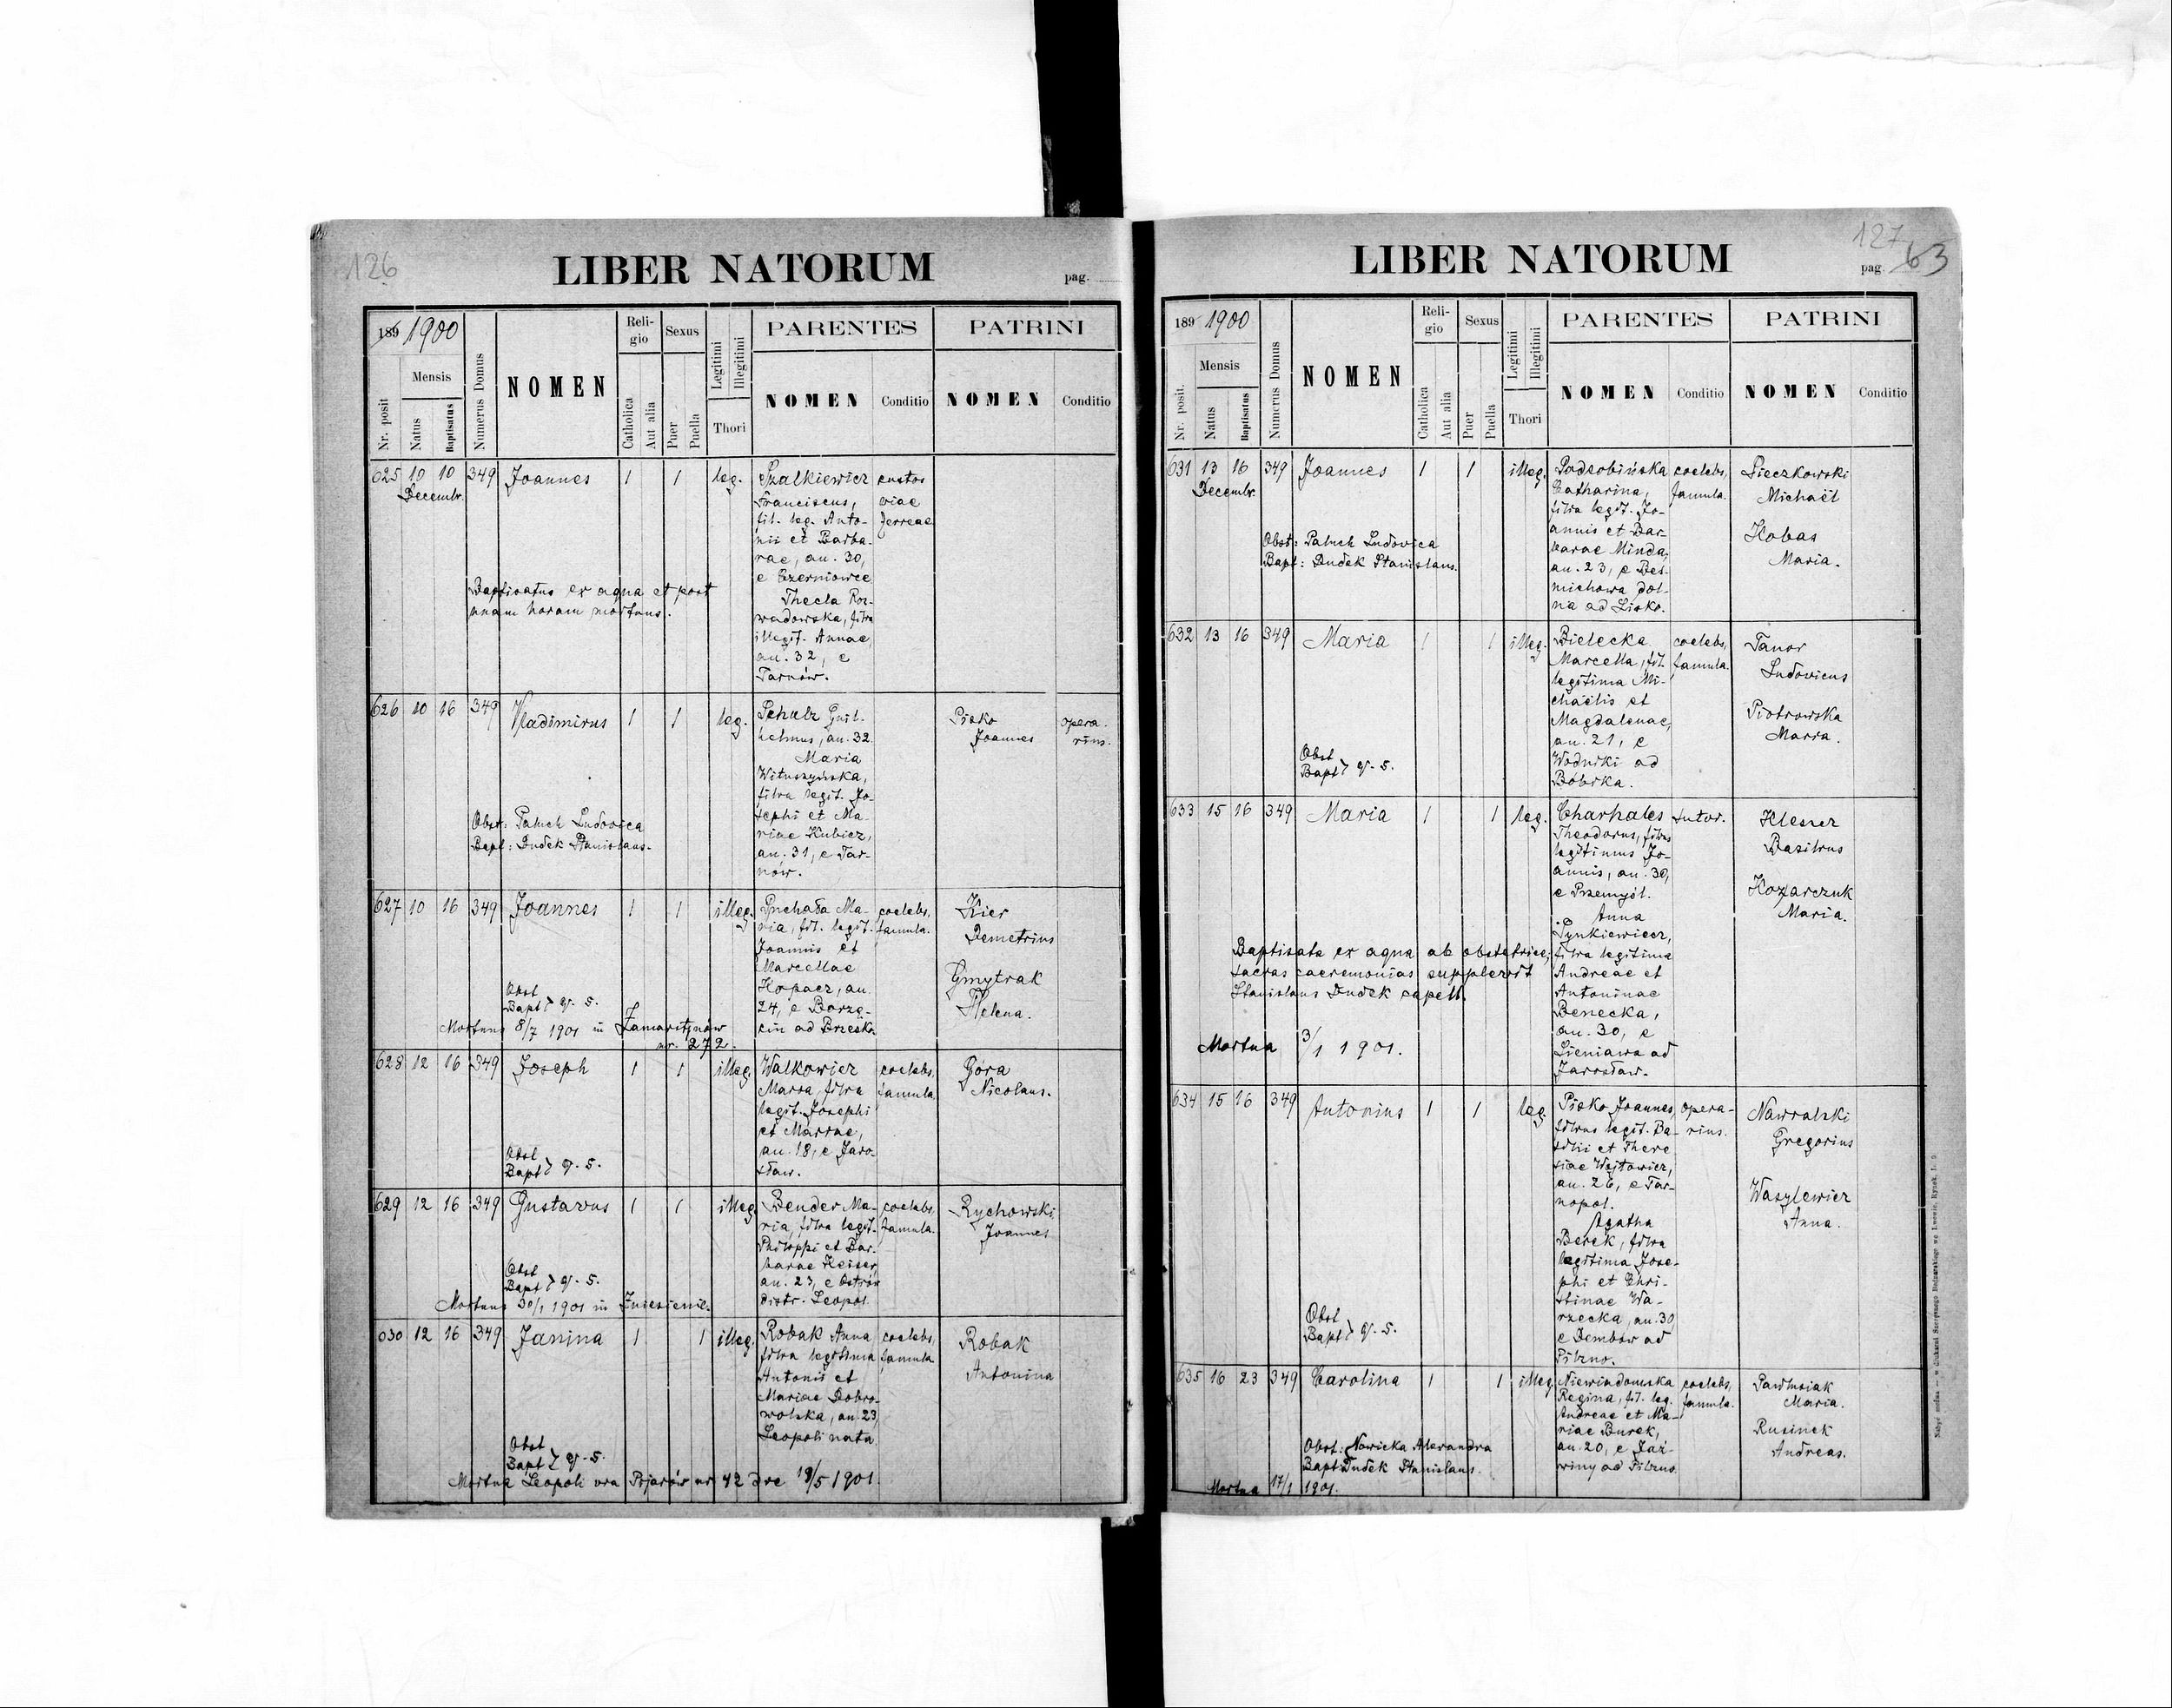 126
LIBER NATORUM
pag.
189 1900
Mensis
Nr. posit
Natus
Baptisatus
Numerus Domus
NOMEN
Religio
Catholica
Aut alia
Sexus
Puer
Puella
Legitimi
Illegitimi
Thori
PARENTES
NOMEN
Conditio
PATRINI
NOMEN
Conditio
625 10 10 349 Joannes 1 1 leg. Szalkiewicz custos
Decembr.
Franciscus, viae
fil. leg. Anto- ferreae
nii et Barba-
rae, an. 30,
e Czerniowce
Thecla Roz-
wadowska, filia
illegit. Annae,
an. 32, e
Tarnów.
Baptisatus ex aqua et post
unam horam mortuus.
626 10 16 349 Vladimirus 1 1 leg. Schulz Guil-
helmus, an. 32.
Maria
Wituszyńska,
filia legit. Jo-
sephi et Ma-
riae Kubicz,
an. 31, e Tar-
nów.
Pisko opera-
Joannes rius.
Obst: Paluch Ludovica
Bapt: Dudek Stanislaus.
627 10 16 349 Joannes 1 1 illeg. Puchała Ma- coelebs,
ria, fil. legit. famula.
Joannis et
Marcellae
Kopacz, an.
24, e Borzę-
cin ad Brzesko
Kier
Demetrius
Gmytrak
Helena.
Obst
Bapt } q. s.
Mortuus 8/7 1901 in Zamarstynów
nr. 272.
628 12 16 349 Joseph 1 1 illeg. Walkowicz coelebs,
Maria, filia famula.
legit. Josephi
et Mariae,
an. 18, e Jaro-
sław.
Góra
Nicolaus.
Obst
Bapt } q. s.
629 12 16 349 Gustavus 1 1 illeg. Bender Ma- coelebs,
ria, filia legit. famula.
Philippi et Bar-
barae Keiser,
an. 23, e Ostrów
distr. Leopol.
Rychowski
Joannes
Obst
Bapt } q. s.
Mortuus 30/1 1901 in Zniesienie.
630 12 16 349 Janina 1 1 illeg. Robak Anna coelebs,
filia legitima famula
Antonii et
Mariae Dobro-
wolska, an. 23,
Leopoli nata
Robak
Antonina
Obst
Bapt } q. s.
Mortua Leopoli via Pijarów nr 42 die 19/5 1901.
127
LIBER NATORUM
pag. 63
189 1900
Mensis
Nr. posit.
Natus
Baptisatus
Numerus Domus
NOMEN
Religio
Catholica
Aut alia
Sexus
Puer
Puella
Legitimi
Illegitimi
Thori
PARENTES
NOMEN
Conditio
PATRINI
NOMEN
Conditio
631 13 16 349 Joannes 1 1 illeg. Podsobińska coelebs,
Decembr.
Catharina, famula.
filia legit. Jo-
annis et Bar-
barae Minda,
an. 23, e Bez-
michowa dol-
na ad Lisko.
Sieczkowski
Michaël
Kobas
Maria.
Obst: Paluch Ludovica
Bapt: Dudek Stanislaus.
632 13 16 349 Maria 1 1 illeg. Bielecka coelebs,
Marcella, fil. famula.
legitima Mi-
chaëlis et
Magdalenae,
an. 21, e
Wodniki ad
Bóbrka.
Tanor
Ludovicus
Piotrowska
Maria.
Obst
Bapt } q. s.
633 15 16 349 Maria 1 1 leg. Charhales sutor.
Theodorus, filius
legitimus Jo-
annis, an. 30,
e Przemyśl.
Anna
Synkiewicz,
filia legitima
Andreae et
Antoninae
Benecka,
an. 30, e
Sieniawa ad
Jarosław.
Klesnz
Basilius
Kozarczuk
Maria.
Baptisata ex aqua ab obstetrice;
sacras caeremonias supplevit
Stanislaus Dudek capell.
Mortua 3/1 1901.
634 15 16 349 Antonius 1 1 leg. Pisko Joannes, opera-
filius legit. Ba- rius.
silii et There-
siae Wojtowicz,
an. 26, e Tar-
nopol.
Agatha
Berek, filia
legitima Jose-
phi et Chri-
stinae Wa-
rzecka, an. 30
e Dembów ad
Pilzno.
Nawralski
Gregorius
Wasylewicz
Anna.
Obst
Bapt } q. s.
635 16 23 349 Carolina 1 1 illeg. Niewiadomska coelebs,
Regina, fil. leg. famula.
Andreae et Ma-
riae Burek,
an. 20, e Jaź-
winy ad Pilzno.
Pawlusiak
Maria.
Rusinek
Andreas.
Obst: Nowicka Alexandra
Bapt: Dudek Stanislaus.
Mortua 17/1 1901.